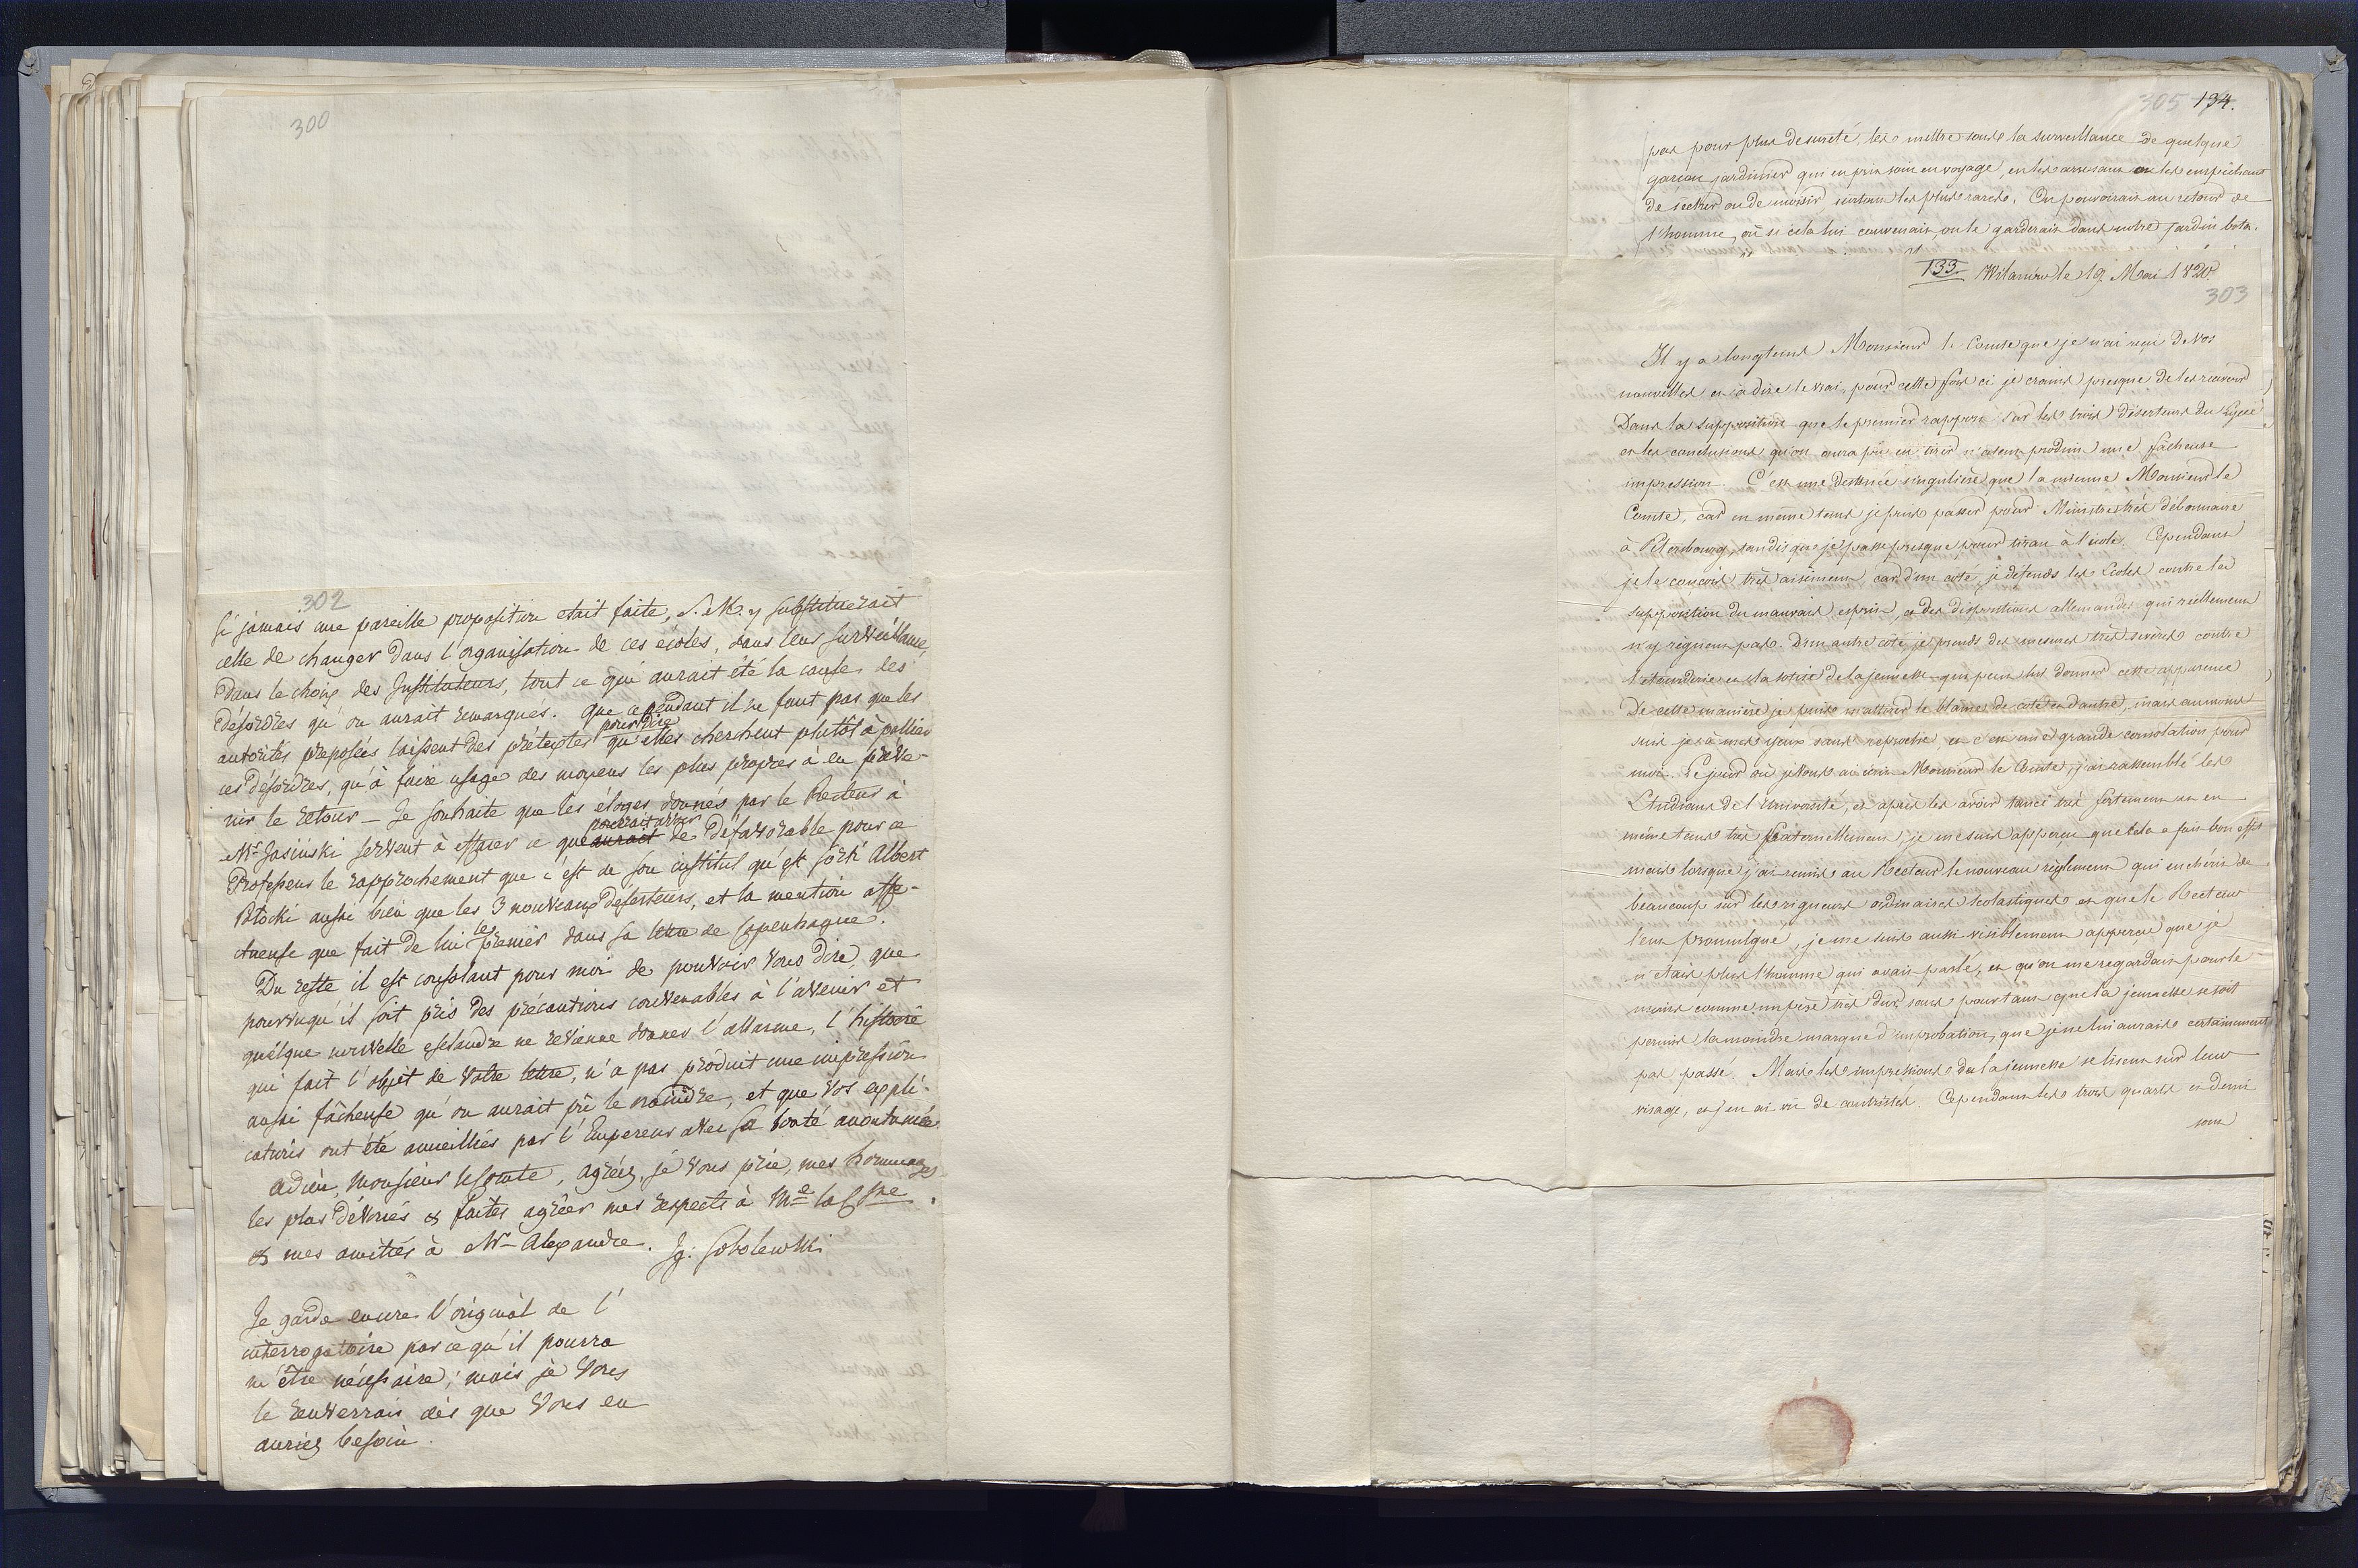 300
302
si jamais une pareille proposition etait faite, S. M. y substituerait
celle de changer dans l'organisation de ces ecoles, dans leur surveillance,
dans le choix des Instituteurs, tout ce qui aurait été la cause des
désordres qu'on aurait remarqués. Que cependant il ne faut pas que les
autorités preposées laissent des prétextes pour dire qu'elles cherchent plutôt à pallier
ces désordres, qu'à faire usage des moyens les plus propres à en préve-
nir le retour — Je souhaite que les éloges donnés par le Recteur à
Mr. Jasiński servent à effacer ce que aurait pourrait avoir de défavorable pour ce
Professeur le rapprochement que c'est de son institut qu'est sorti Albert
Potocki aussi bien que les 3 nouveaux deserteurs, et la mention affe-
ctueuse que fait de lui le premier dans sa lettre de Coppenhague.
Du reste il est consolant pour moi de pouvoir Vous dire, que
pourvuqu'il soit pris des précautions convenables à l'avenir et
quelque nouvelle esclandre ne revienne donner l'allarme, l'histoire
qui fait l'objet de Votre lettre, n'a pas produit une impression
aussi fâcheuse qu'on aurait pû le craindre, et que Vos expli-
cations ont été accueillies par l'Empereur avec sa bonté accoutumée
Adieu, Monsieur le Comte, agréez, je Vous prie, mes hommages
les plus dévoués & faites agréer mes respects à Me la Csse
& mes amitiés à Mr. Alexandre. Ig: Sobolewski
Je garde encore l'original de l'
interrogatoire parce qu'il pourra
m'être nécessaire; mais je Vous
le renverrais dès que Vous en
auriez besoin.
305 134.
pas pour plus de sureté, les mettre sous la surveillance de quelque
garçon jardinier qui en prit soin en voyage, en les arrosant en les empêchant
de sécher ou de moisir, surtout les plus rares. On pouvoirait au retour de
l'homme, où si cela lui convenait, on le garderait dans notre jardin bota.
133 Wilanów le 19. Mai 1820.
303
Il y a longtems Monsieur le Comte que je n'ai reçu de Vos
nouvelles et à dire le vrai, pour cette fois ci je crains presque de les recevoir
Dans la supposition que le premier rapport sur les trois déserteurs du Lycée
et les conclusions qu'on aura pû en tirer n'aient produit une fâcheuse
impression. C'est une destinée singulière que la mienne Monsieur le
Comte, car en même tems je puis passer pour Ministre très débonnaire
à Petersbourg, tandis que je passe presque pour tiran à l'école. Cependant
je le conçois très aisément, car d'un côté, je défends les Ecoles contre la
supposition du mauvais esprit, et des dispositions allemandes qui réellement
n'y règnent pas. D'un autre côté, je prends des mesures très sévères contre
l'étourderie et la sotise de la jeunesse qui peut lui donner cette apparence
De cette manière je puis m'attirer le blâme de côté et d'autre, mais au moins
suis je à mes yeux sans reproche, et c'est une grande consolation pour
moi. Le jour où je Vous ai écrit Monsieur le Comte, j'ai rassemblé les
Etudians de l'Université, et après les avoir tancé très fortement et en
même tems très paternellement, je me suis apperçu que cela a fait bon effet
mais lorsque j'ai remis au Recteur le nouveau règlement qui enchérit de
beaucoup sur les rigueurs ordinaires scolastiques et que le Recteur
l'eut promulgué, je me suis aussi visiblement apperçu que je
n'étais plus l'homme qui avait parlé, et qu'on me regardait pour le
moins comme un père très dur, sans pourtant que la jeunesse se soit
permis la moindre marque d'improbation, que je ne lui aurais certainement
pas passé. Mais les impressions de la jeunesse se lisent sur leur
visage, et j'en ai vû de contristés. Cependant les trois quarts et demi
sont